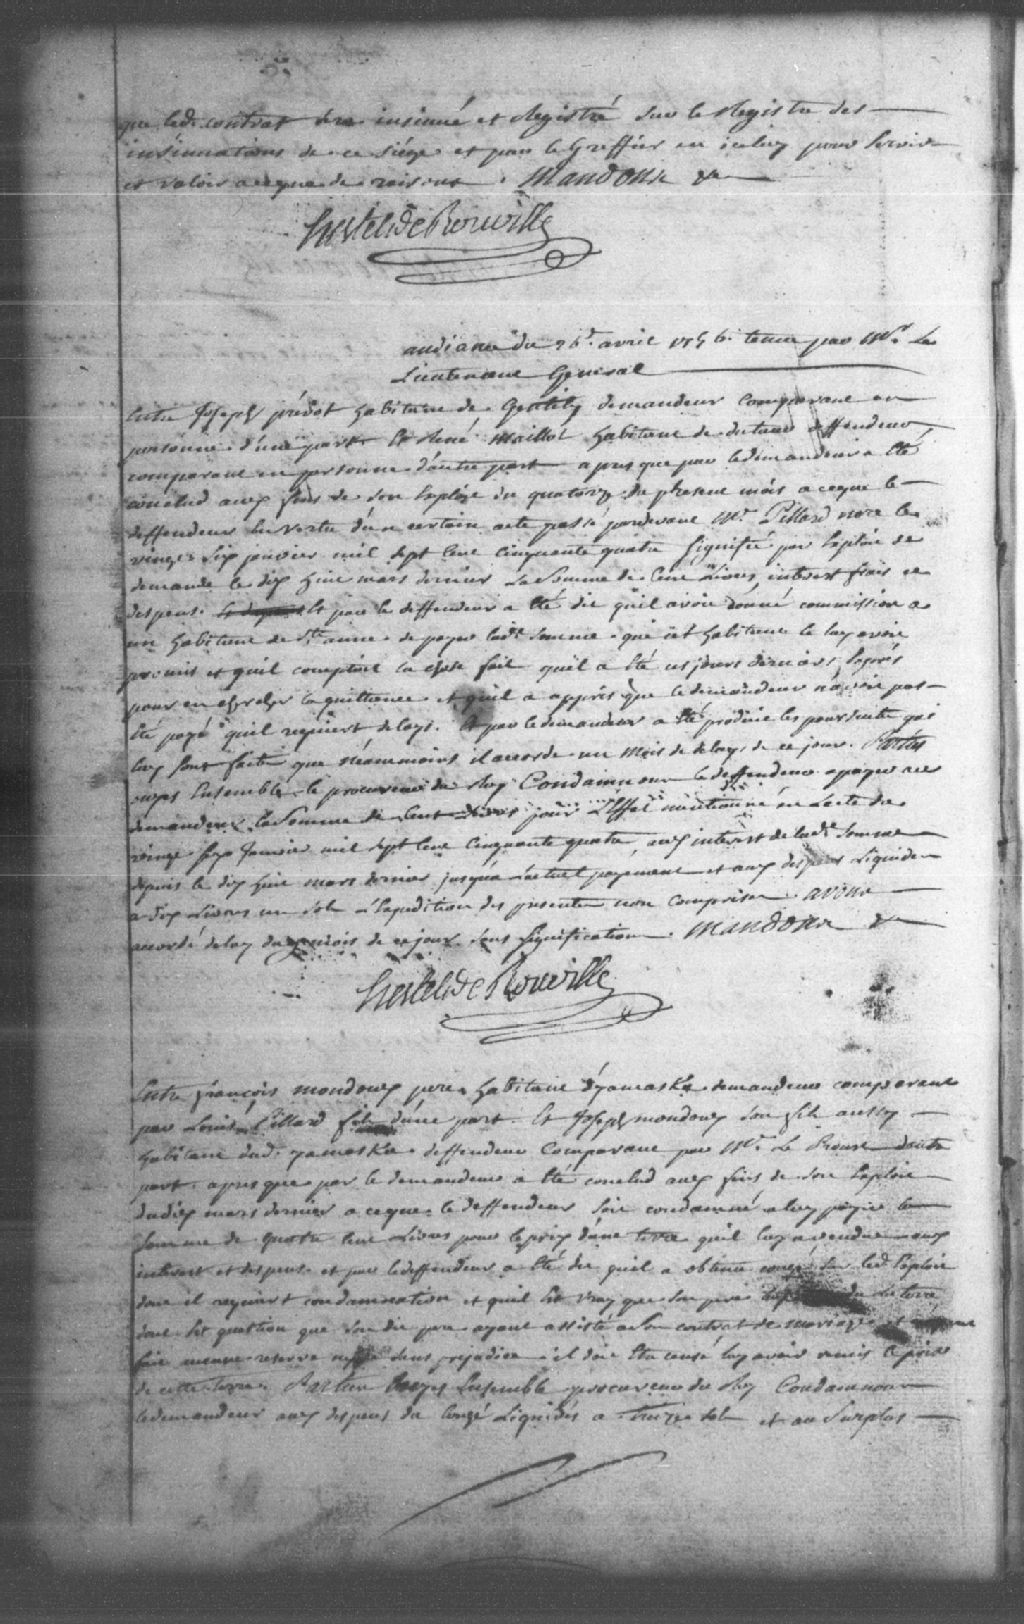 que ledt contrat sera insinué et Registré sur le Registre des
insinuations de ce siége et par le Greffier en iceluy pour servir
et valoir a ceque de raison . Mandons &a
hertel de Rouville
audiance du 26e avril 1756 tenue par Mr Le
Lieutenant General
Entre Joseph prédot habitant de Gentilly demandeur comparant en
personne d'une part Et René Maillot habitant de deffendeur
comparant en personne d'autre part apres que par le demandeur a Eté
conclud aux fins de Son Exploit du quatorze du present mois a ceque le
deffendeur En vertu d'un certain acte passé pardevant Me Pillard nore le
vingt Six janvier mil sept Cent cinquante quatre signifié par Exploit de
demande le dix huit mars dernier La Somme de Cent Livres, interest frais et
despens. Et par le deffendeur a Eté dit quil avoit donné commission a
un habitant de Ste anne de payer ladte Somme que cet habitant le luy avoit
promis et quil comptoit la chose fait quil a Eté ces jours derniers Exprés
pour en chercher la quittance et quil a appris que le demandeur n'avoit pas
Eté payé quil requiert delays. Et par le demandeur a Eté produit les poursuites qui
luy sont faites que néanmoins il accorde un mois de delay de ce jour. Parties
ouyes Ensemble le procureur du Roy Condamnons le deffendeur a payer au
demandeur la Somme de Cent Livres pour L'Effet mentionné en L'acte du
vingt Six Janvier mil sept Cent cinquante quatre, aux interest de ladte Somme
depuis le dix huit mars dernier jusqu'a L'actuel payement et aux despens Liquidés
a Six Livres un Sol L'Expedition des presentes non comprise avons
accordé delay du mois de ce jour Sans signification . Mandons &a
hertel de Rouville
Entre françois mondoux pere habitant d'yamaska demandeur comparant
par Louis Pillard fils d'une part. Et Joseph mondoux Son fils aussy
habitant dud. yamaska deffendeur Comparant par Me Le Proust d'autre
part. apres que par le demandeur a Eté conclud aux fins de Son Exploit
du dix mars dernier a ceque le deffendeur Soit condamné a luy payer la
Somme de quatre Cent Livres pour le prix d'une terre quil luy a vendue aux
interest et despens et par le deffendeur a Eté dit quil a obtenu congé Sur led Exploit
dont il requiert condamnation et quil Est vray que Son pere la terre
dont Est question que Son dit pere ayant assisté a Son contrat de mariage et
fait aucune reserve sans prejudice il doit Etre censé luy avoir remis le prix
de cette terre. Parties Ouyes Ensemble procureur du Roy Condamnons
le demandeur aux despens du Congé Liquidés a treize Sols et au Surplus